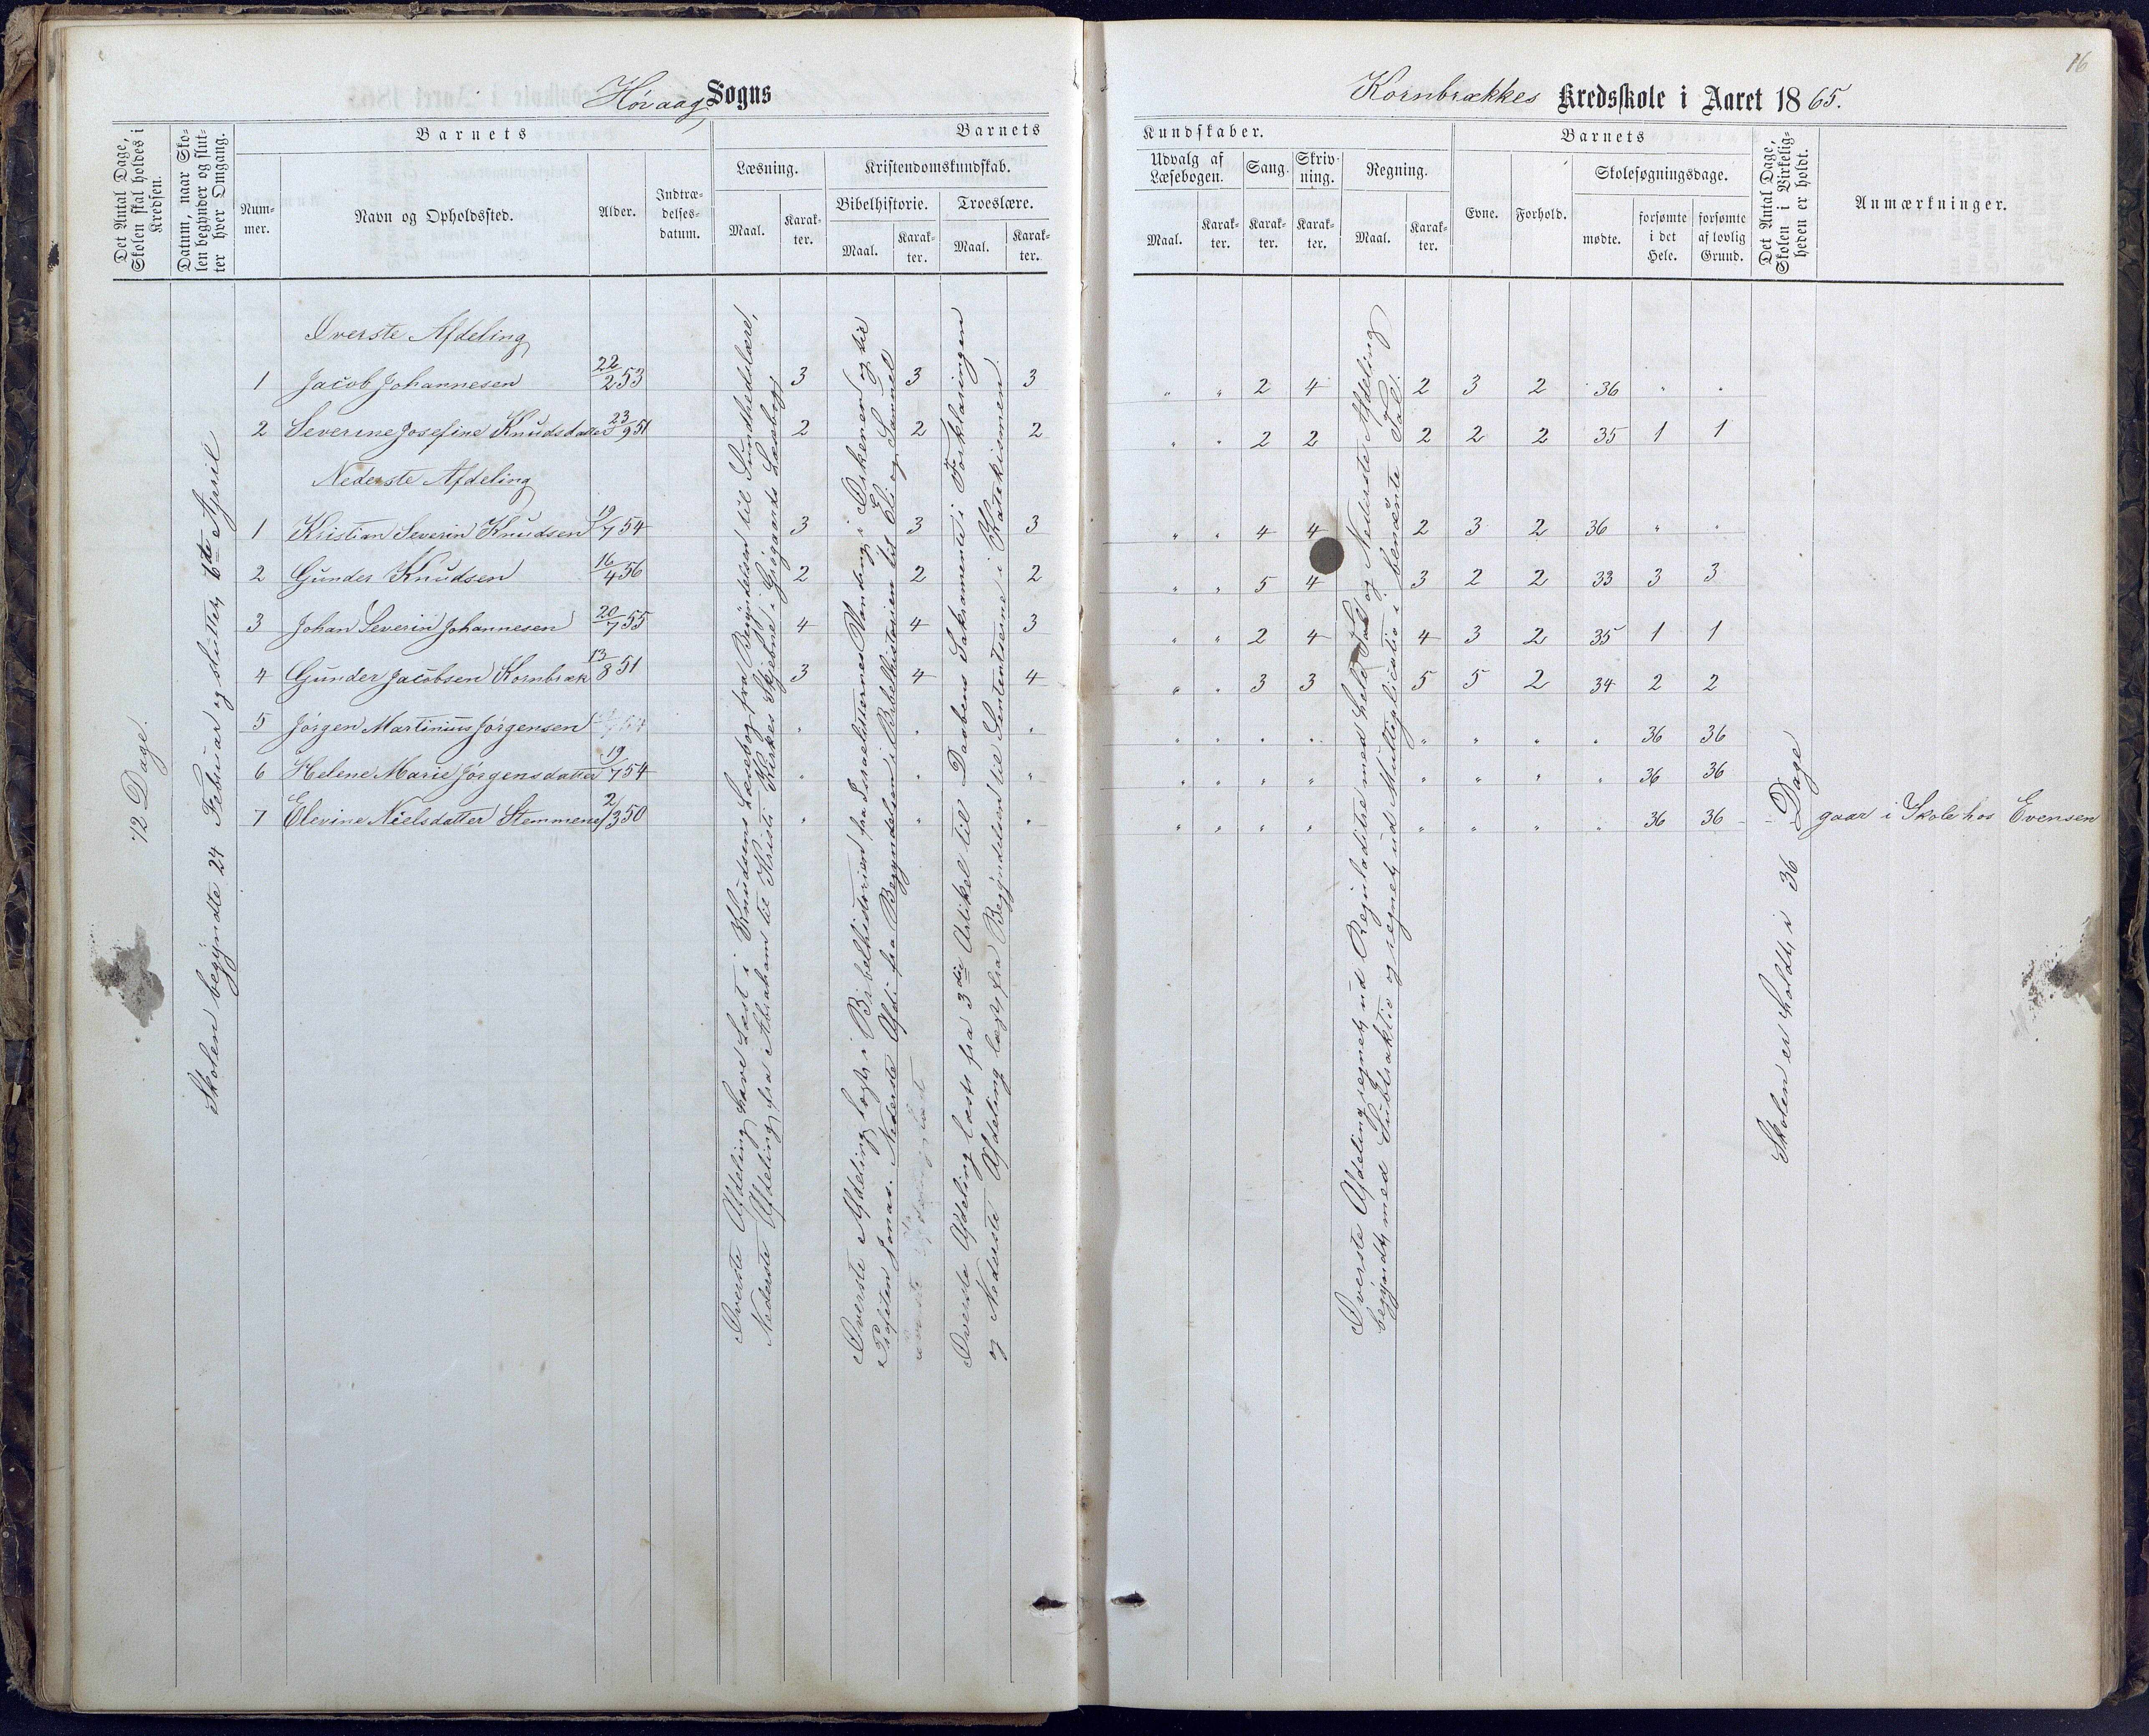 16
Høvaag Sogns
Kornbrækkes Kredsskole i Aaret 1865.
Det Antal Dage, Skolen skal holdes i Kredsen.
Datum, naar Skolen begynder og slutter hver Omgang.
Barnets
Nummer.
Navn og Opholdssted.
Alder.
Indtrædelsesdatum.
Barnets
Læsning.
Maal.
Karakter.
Kristendomskundskab.
Bibelhistorie.
Maal.
Karakter.
Troeslære.
Maal.
Karakter.
Kundskaber.
Udvalg af Læsebogen.
Maal.
Karakter.
Sang.
Karakter.
Skrivning.
Karakter.
Regning.
Maal.
Karakter.
Barnets
Evne.
Forhold.
Skolesøgningsdage.
mødte.
forsømte i det Hele.
forsømte af lovlig Grund.
Det Antal Dage, Skolen i Virkeligheden er holdt.
Anmærkninger.
12 Dage.
Skolen begyndte 24 Februar og sluttet 6te April
Øverste Afdeling
1 Jacob Johannesen 22/2 53 3 3 3 " " 2 4 2 3 2 36 " "
2 Severine Josefine Knudsdatter 23/9 51 2 2 2 " " 2 2 2 2 2 35 1 1
Nederste Afdeling
1 Kristian Severin Knudsen 19/7 54 3 3 3 " " 4 4 2 3 2 36 " "
2 Gunder Knudsen 16/4 56 2 2 2 " " 5 4 3 2 2 33 3 3
3 Johan Severin Johannesen 20/7 55 4 4 3 " " 2 4 4 3 2 35 1 1
4 Gunder Jacobsen Kornbræk 13/8 51 3 4 4 " " 3 3 5 5 2 34 2 2
5 Jørgen Martinius Jørgensen " " " " " " " " " " " 36 36
6 Helene Marie Jørgensdatter 19/7 54 " " " " " " " " " " " 36 36
7 Elevine Nielsdatter Stemmene 2/3 50 " " " " " " " " " " " 36 36 gaar i Skole hos Evensen
Øverste Afdeling have Læst i Knudsens Læsebog fra Begyndelsen til Sundhedslære,
Nederste Afdeling fra Abraham til Kristi Kirkes Skjebne i Grøgaards Læsebog
Øverste Afdeling læst i Bibelhistorien fra Israelitternes Vandring i Ørkenen og til
Profeten Jonas. Nederste Afd. fra Begyndelsen i Bibelhistorien til Eli og Samuel
Øverste Afdeling læst fra 3die Artikel til Daabens Sakramente i Forklaringen
og Nederste Afdeling læst fra Begyndelsen til Sententserne i Katekismen
Øverste Afdeling regnet ud Reguladitre med hele Tal og Nederste Afdeling
begyndt med Subtraktio og regnet ud Multiplicatio i benævnte Tal.
Skolen er holdt i 36 Dage